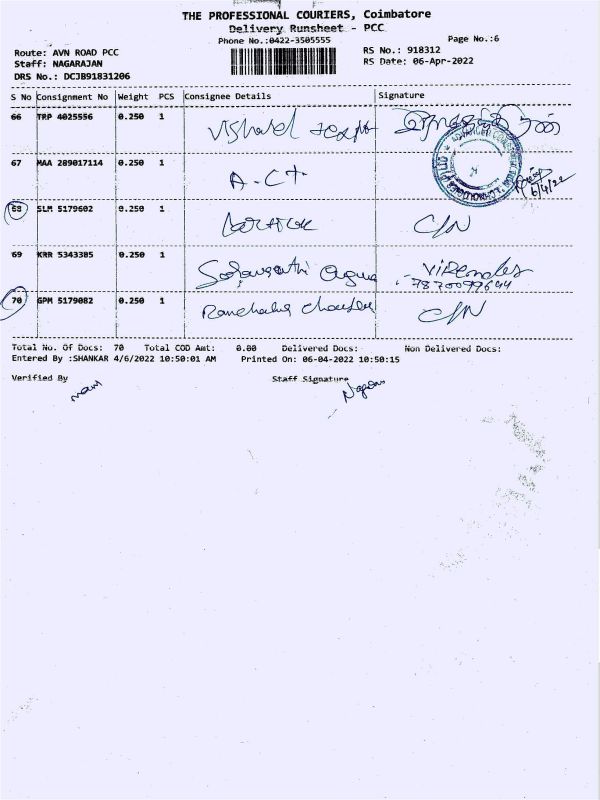 THE PROFESSIONAL COURIERS, Coimbatore
Delivery Runsheet - PCC
Phone No.:0422-3505555
Page No.:6
Route: AVN ROAD PCC
RS No.: 918312
Staff: NAGARAJAN
RS Date: 06-Apr-2022
DRS No.: DCJB91831206
S No Consignment No Weight PCS Consignee Details Signature
66 TRP 4025556 0.250 1 Vishal
67 MAA 289017114 0.250 1 A.C.T
6/4/22
68 SLM 5179602 0.250 1 C/N
69 KRR 5343385 0.250 1
7870099644
70 GPM 5179082 0.250 1 C/N
Total No. Of Docs: 70 Total COD Amt: 0.00 Delivered Docs: Non Delivered Docs:
Entered By :SHANKAR 4/6/2022 10:50:01 AM Printed On: 06-04-2022 10:50:15
Verified By Staff Signature